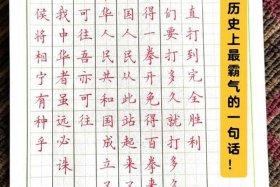 侯将相宁有种乎
我中华者虽远必诛
可往吾亦可往
华人民共和国成立了
国人民从此站起来了
得一拳开免得百拳来
们要打多久就打多久
直打到完全胜利
历史上最霸气的一句话！